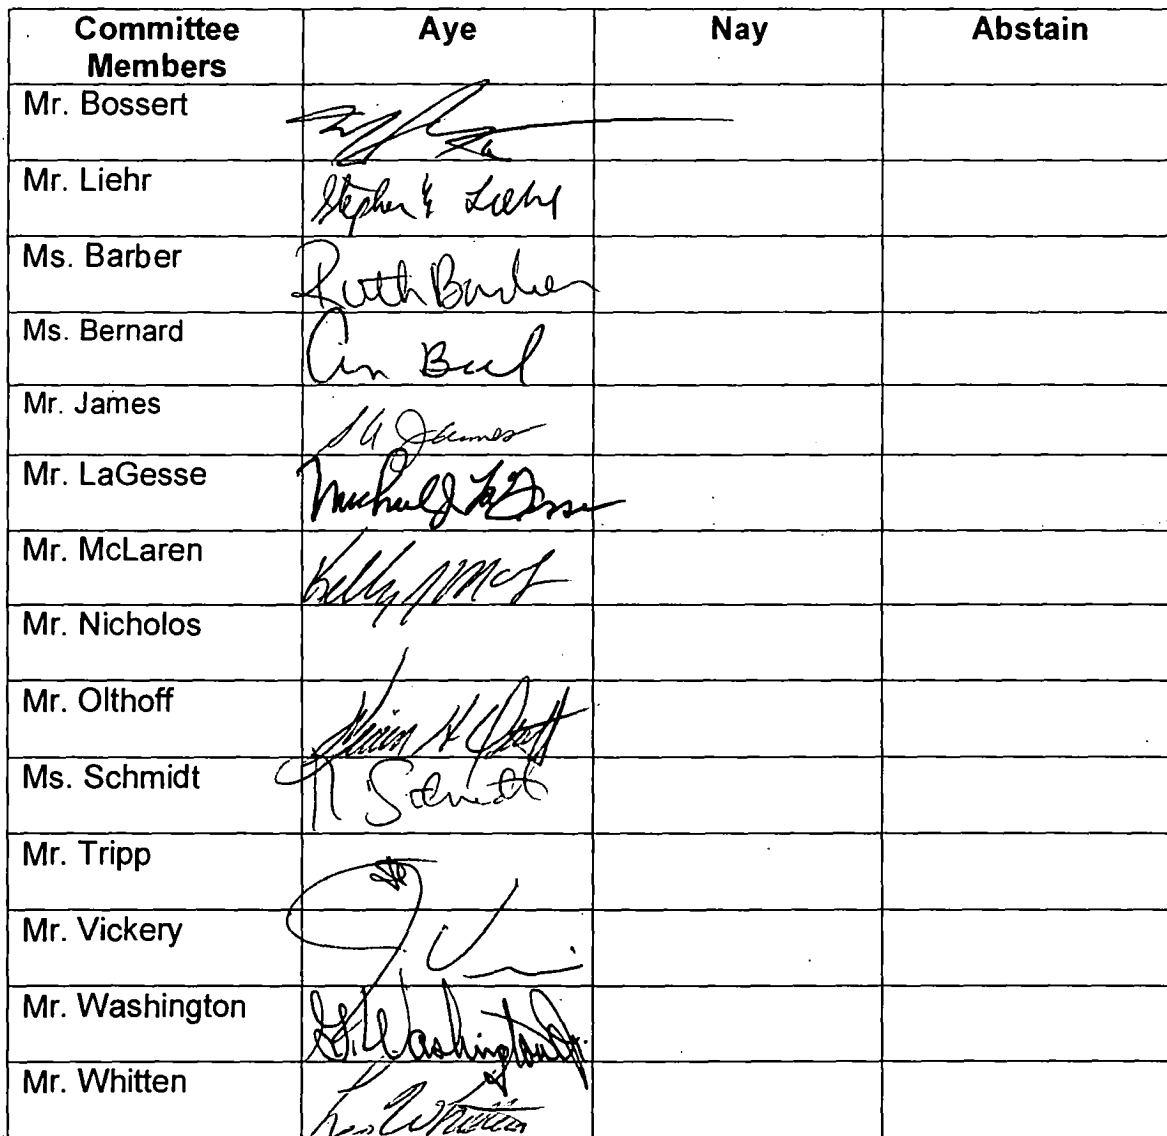 Committee Members Aye Nay Abstain
Mr. Bossert
Mr. Liehr Stephen Liehr
Ms. Barber Ruth Barber
Ms. Bernard
Mr. James James
Mr. LaGesse Michael J LaGesse
Mr. McLaren Kelly
Mr. Nicholos
Mr. Olthoff
Ms. Schmidt Schmidt
Mr. Tripp
Mr. Vickery
Mr. Washington G. Washington Jr.
Mr. Whitten Whitten